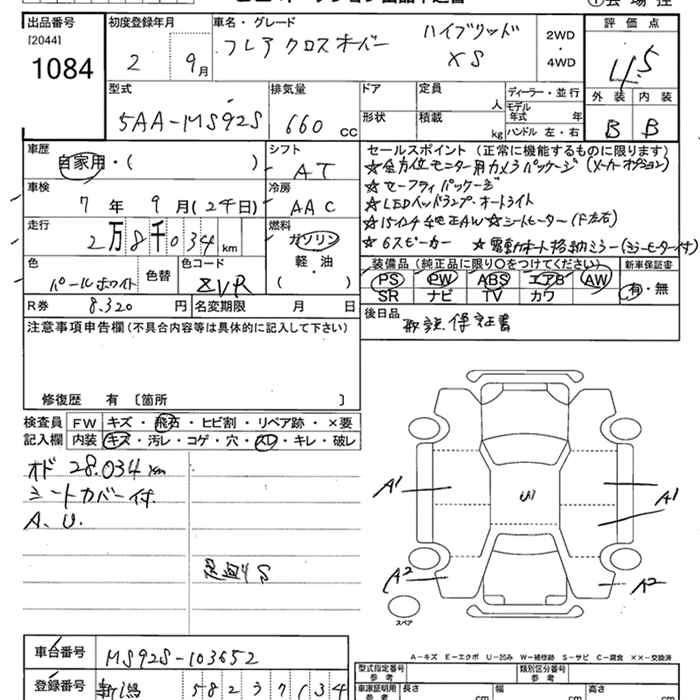 出品番号 初度登録年月 車名・グレード 評価点
[2044]
1084
2 9月 フレアクロスオーバー ハイブリッド XS 2WD・4WD 4.5
型式 排気量 ドア 定員 人 ディーラー・並行 外装 内装
5AA-MS92S 660 cc 形状 積載 kg モデル年式 年 ハンドル 左・右 B B
車歴 自家用・( ) シフト AT
車検 7年 9月(24日) 冷房 AAC
走行 2万8千034km 燃料 ガソリン 軽・油 ( )
色 パールホワイト 色替 色コード ZVR
R券 8.320円 名変期限 月 日
セールスポイント(正常に機能するものに限ります)
☆全方位モニター用カメラパッケージ(メーカーオプション)
☆セーフティパッケージ
☆LEDヘッドランプ・オートライト
☆15インチ純正AW ☆シートヒーター(F左右)
☆6スピーカー ☆電動オート格納ミラー(ミラーヒーター付)
装備品(純正品に限り〇をつけてください) 新車保証書
PS PW ABS エアB AW 有・無
SR ナビ TV カワ
後日品 取説、保証書
注意事項申告欄(不具合内容等は具体的に記入して下さい)
修復歴 有〔箇所 〕
検査員記入欄 FW キズ・飛石・ヒビ割・リペア跡・×要
内装 キズ・汚レ・コゲ・穴・スレ・キレ・破レ
オド 28.034km
シートカバー付
A、U.
足廻りS
A1 U1 A1
A2 A2
スペア
A-キズ E-エクボ U-凹み W-補修跡 S-サビ C-腐食 ××-交換済
車台番号 MS92S-103652
登録番号 新潟 582 ラ 7134
型式指定番号 参考 類別区分番号 参考
車庫証明用 参考 長さ cm 幅 cm 高さ cm